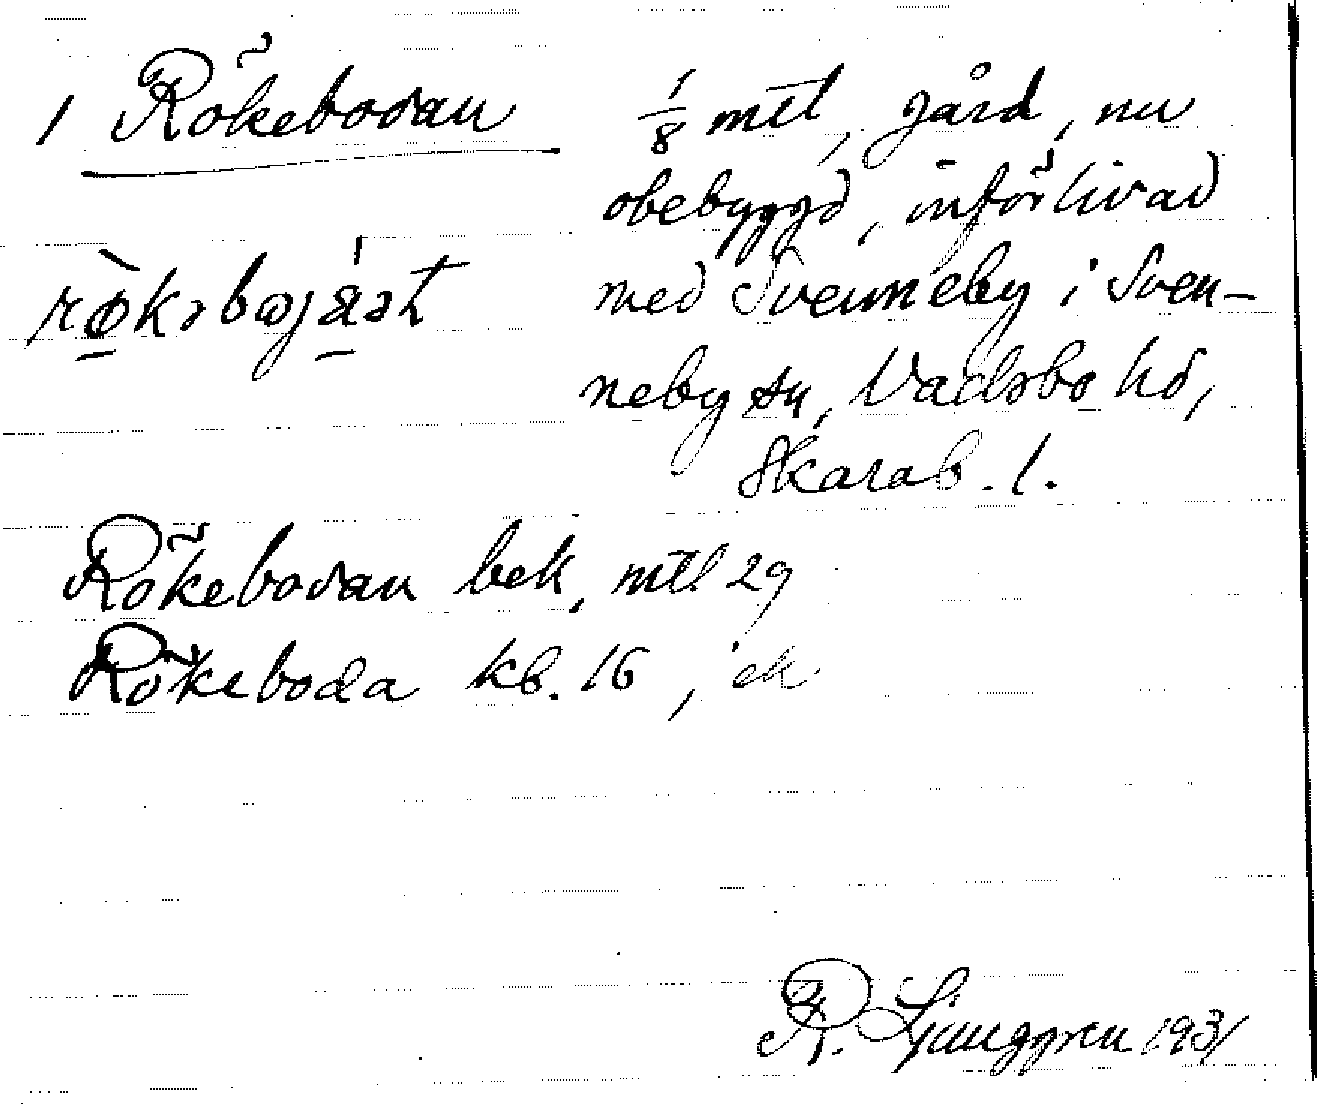 1 Rökebodan
1/8 mtl, gård, nu
obebyggd, införlivad
med Svenneby i Sven-
neby sn, Vadsbo hd,
Skarab. l.
Rökebodan bek, mtl 29
Rökeboda kb. 16, ek
R. Ljunggren 1931